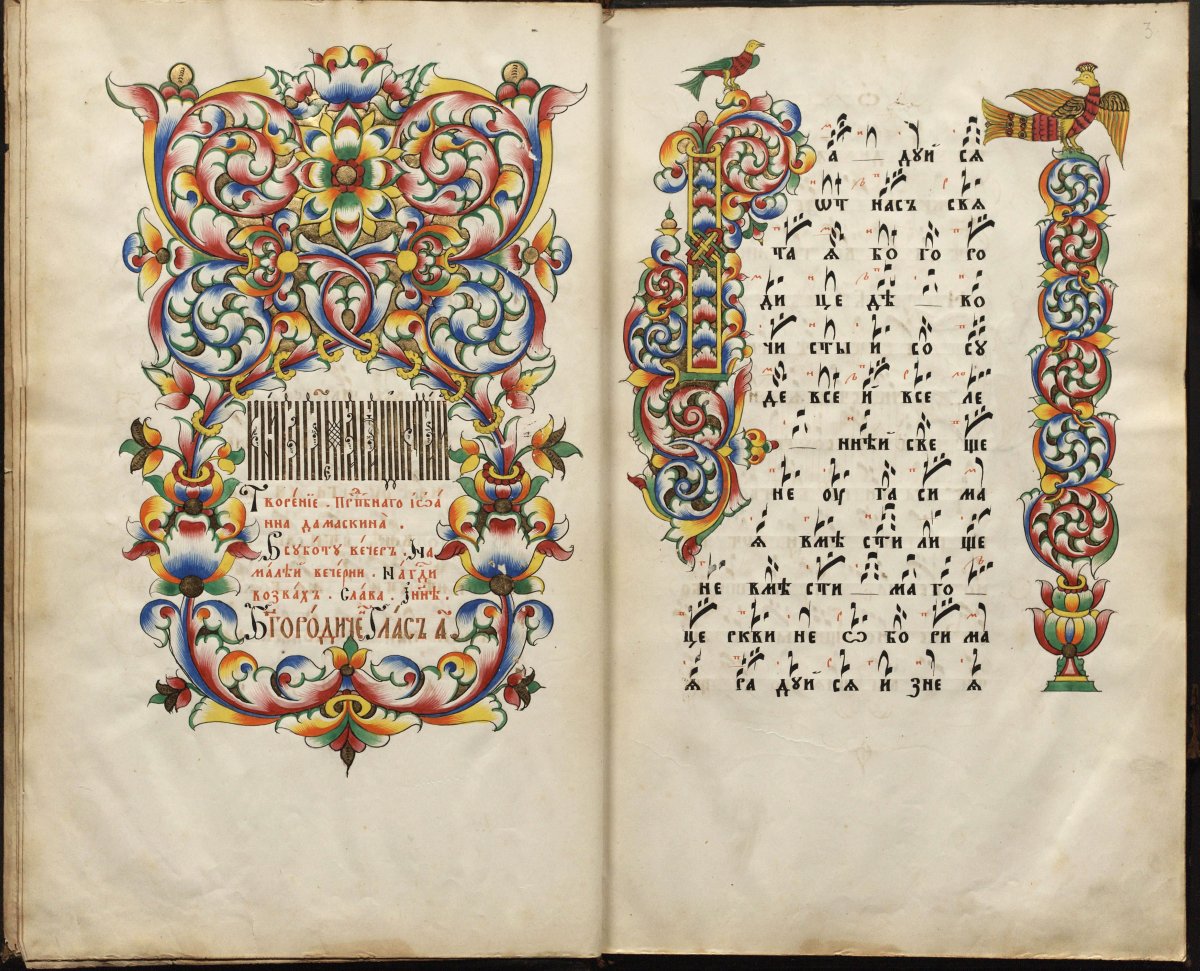 Творенїе . Прпⷣбнаго іѡа́
нна дамаскина̀ .
В суботу вечеръ . На
малѣй вечерни . На гди
возвахъ . Слава . І ннѣ .
Бгородиче Гласъ а҃
3
Ра — дуй сѧ
ѿт насъ свѧ
та ѧ бо го ро
ди це дѣ — во
чи сты и со су
де все й все ле
— ннѣй све ще
не оуг та си ма
ѧ вмѣ сти ли ще
не вмѣ сти — ма го —
це ркви не ѡ бо ри ма
ѧ ра дуй сѧ и зне ѧ